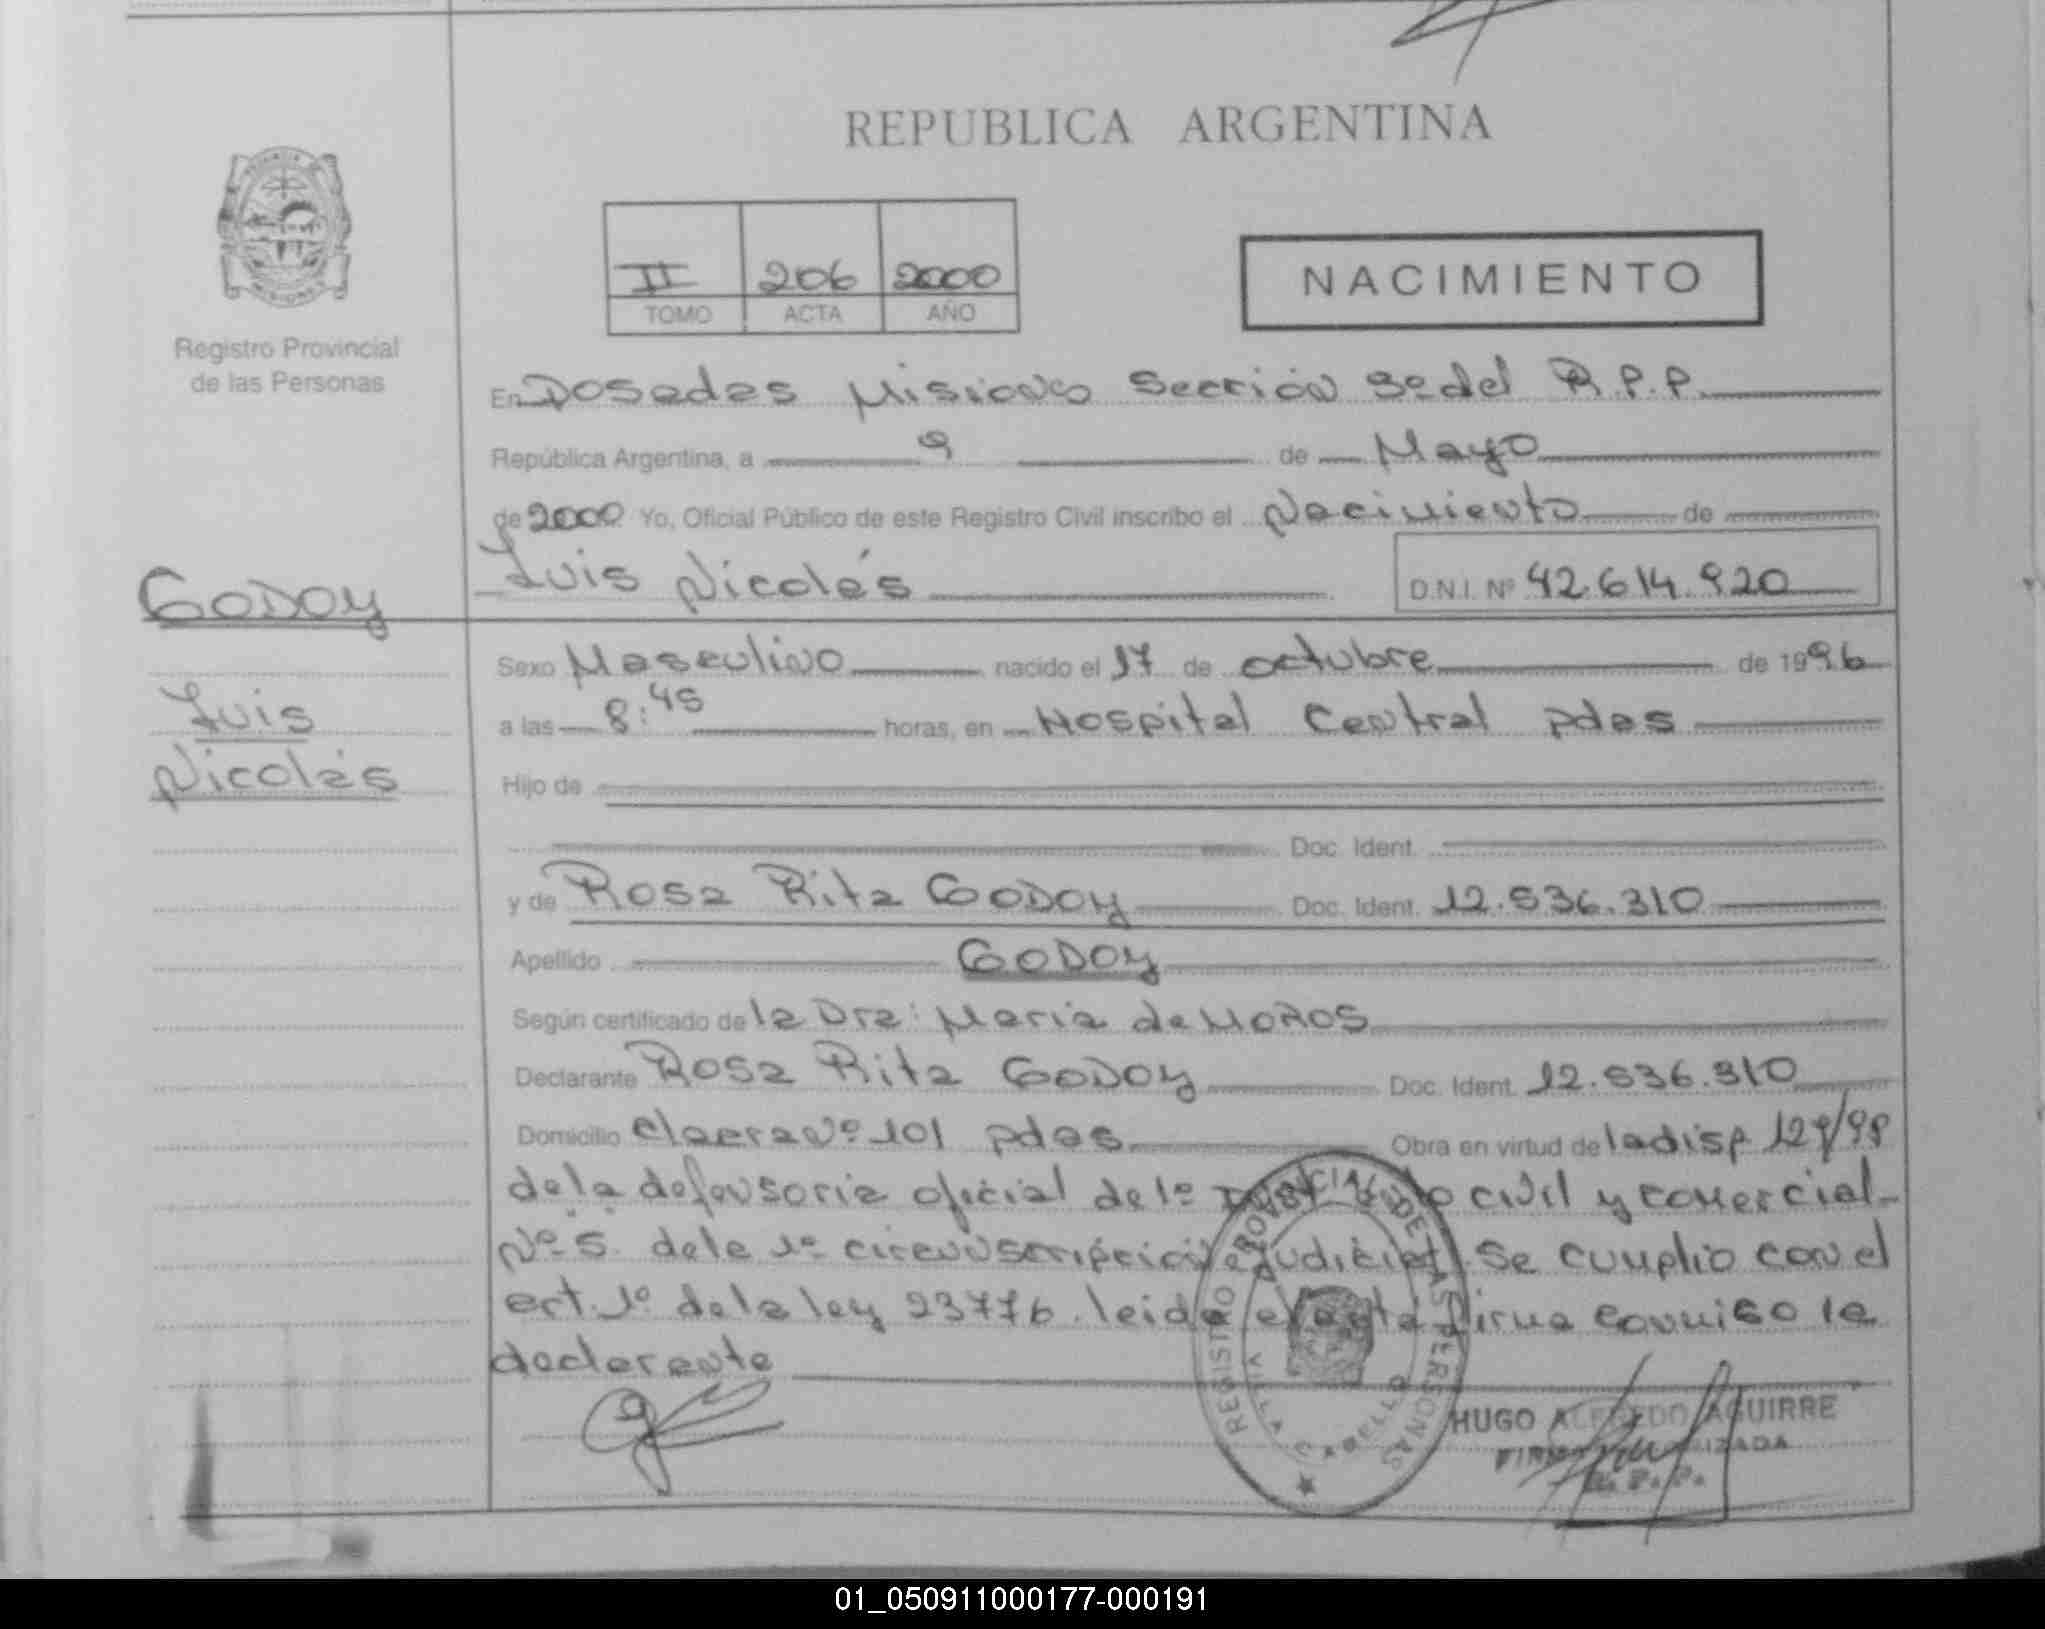 REPUBLICA ARGENTINA
II 206 2000
TOMO ACTA AÑO
NACIMIENTO
Registro Provincial
de las Personas
En Posadas Misiones Sección 3º del R.P.P.
República Argentina, a 9 de Mayo
de 2000 Yo, Oficial Público de este Registro Civil inscribo el Nacimiento de
Luis Nicolás D.N.I. Nº 42.614.920
GODOY
Luis
Nicolás
Sexo Masculino nacido el 17 de octubre de 1996
a las 8:45 horas, en Hospital Central pdas
Hijo de
Doc. Ident.
y de Rosa Rita GODOY Doc. Ident. 12.536.310
Apellido GODOY
Según certificado de la Dra: Maria de MOROS
Declarante Rosa Rita GODOY Doc. Ident. 12.536.310
Domicilio Nº 101 pdas Obra en virtud de la disp
de la defensoria oficial de 1º civil y comercial
Nº 5 de la 1º circunscripción judicial. Se cumplio con el
art. 1º de la ley 23776. leida el acta firma conmigo la
declarante
REGISTRO PROVINCIAL DE LAS PERSONAS
VILLA CABELLO
HUGO ALFREDO AGUIRRE
FIRMA AUTORIZADA
R. P. P.
01_050911000177-000191